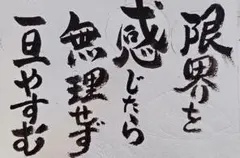 限界を
感じたら
無理せず
一旦やすむ